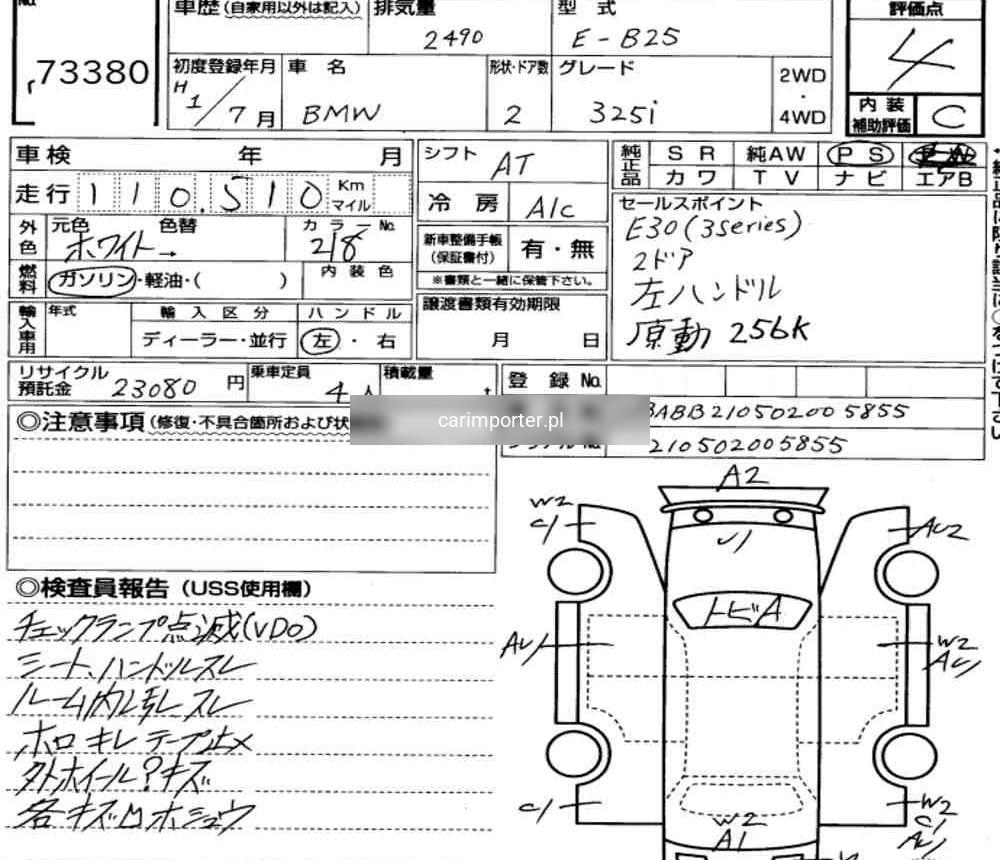 No.
73380
車歴 (自家用以外は記入)
排気量
2490
型式
E-B25
評価点
4
初度登録年月
H1/7月
車名
BMW
形状・ドア数
2
グレード
325i
2WD
・
4WD
内装
補助評価
C
車検 年 月
走行 110,510 Km
マイル
外色
元色 色替
ホワイト→
カラーNo.
218
燃料
ガソリン・軽油・( )
内装色
輸入車用
年式
輸入区分
ディーラー・並行
ハンドル
左・右
シフト
AT
冷房
A/C
新車整備手帳
(保証書付)
有・無
※書類と一緒に保管下さい。
譲渡書類有効期限
月 日
純正品
SR 純AW PS
カワ TV ナビ エアB
セールスポイント
E30(3series)
2ドア
左ハンドル
原動 256K
リサイクル
預託金
23080円
乗車定員
4人
積載量
t
登録No.
BABB210502005855
210502005855
◎注意事項 (修復・不具合箇所および状
carimporter.pl
◎検査員報告 (USS使用欄)
チェックランプ点滅(VDO)
シート、ハンドルスレ
ルーム内張レスレ
ホロ キレ テープ止メ
外ホイール?キズ
各キズ凹ホシュウ
A2
W2
C1
AU2
トビA
AU1
W2
AU1
C1
W2
A1
W2
C1
AU1